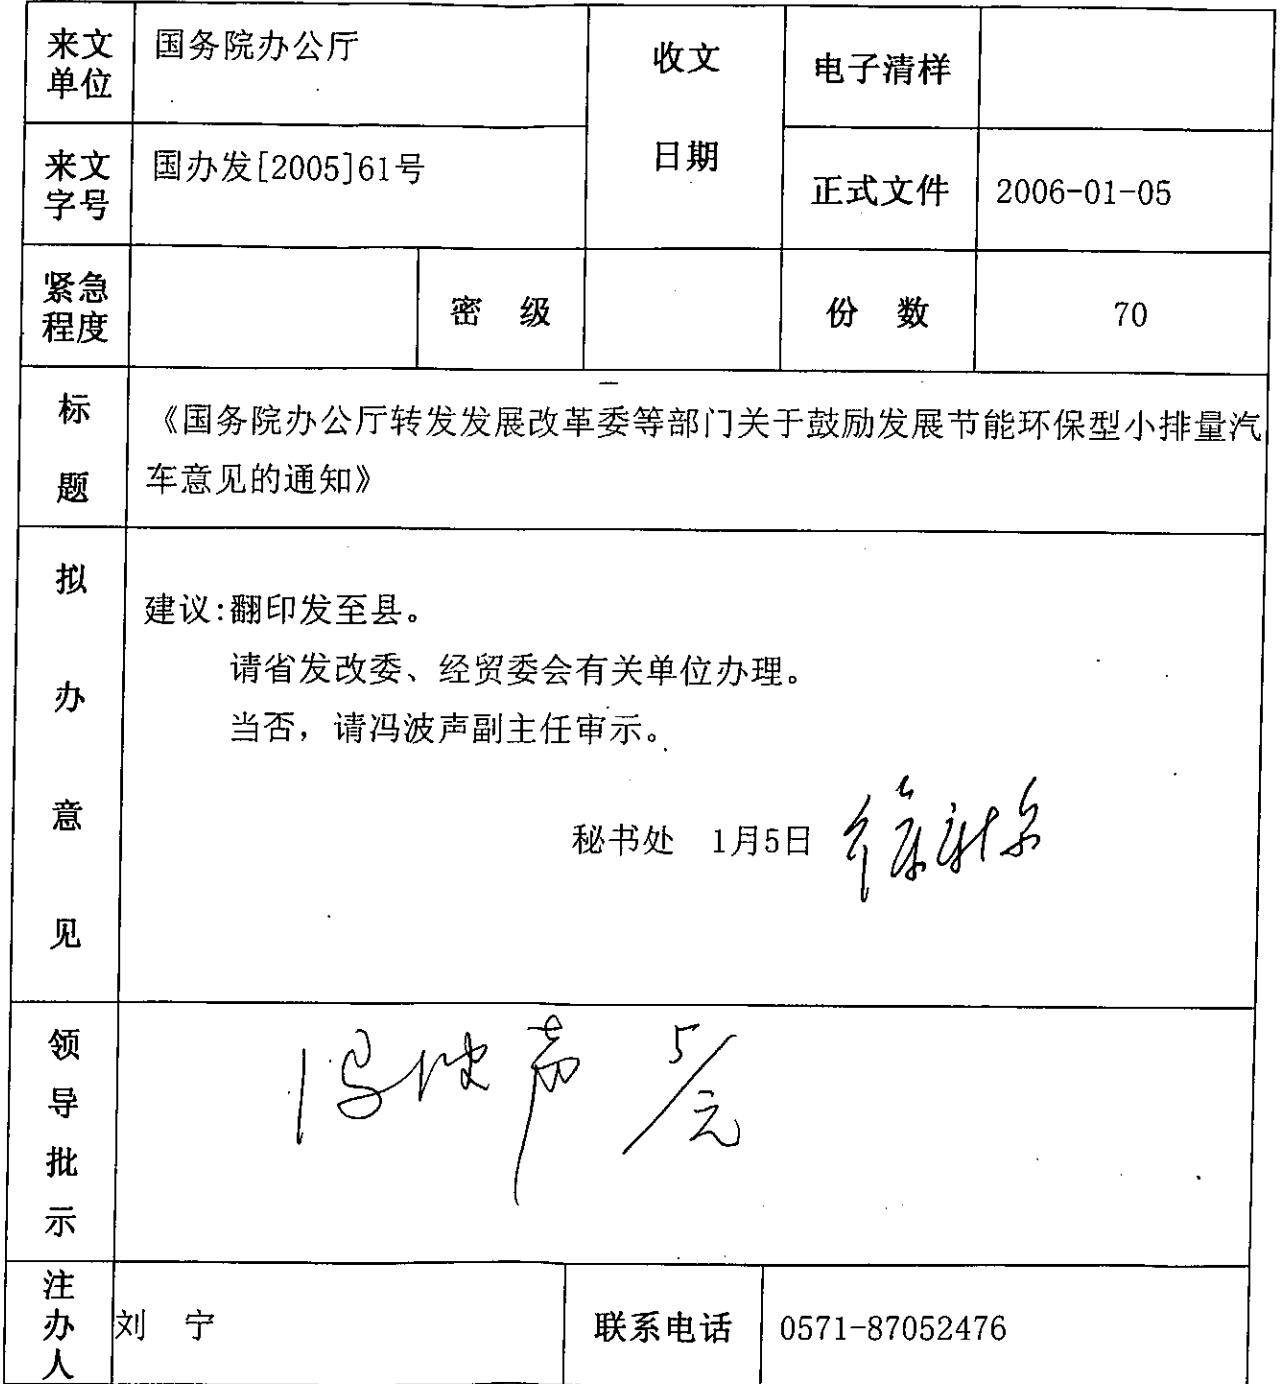 来文单位 国务院办公厅 收文日期 电子清样
来文字号 国办发[2005]61号 正式文件 2006-01-05
紧急程度 密 级 份 数 70
标题 《国务院办公厅转发发展改革委等部门关于鼓励发展节能环保型小排量汽
车意见的通知》
拟办意见
建议:翻印发至县。
请省发改委、经贸委会有关单位办理。
当否，请冯波声副主任审示。
秘书处 1月5日
领导批示
冯波声 5/元
注办人 刘 宁 联系电话 0571-87052476